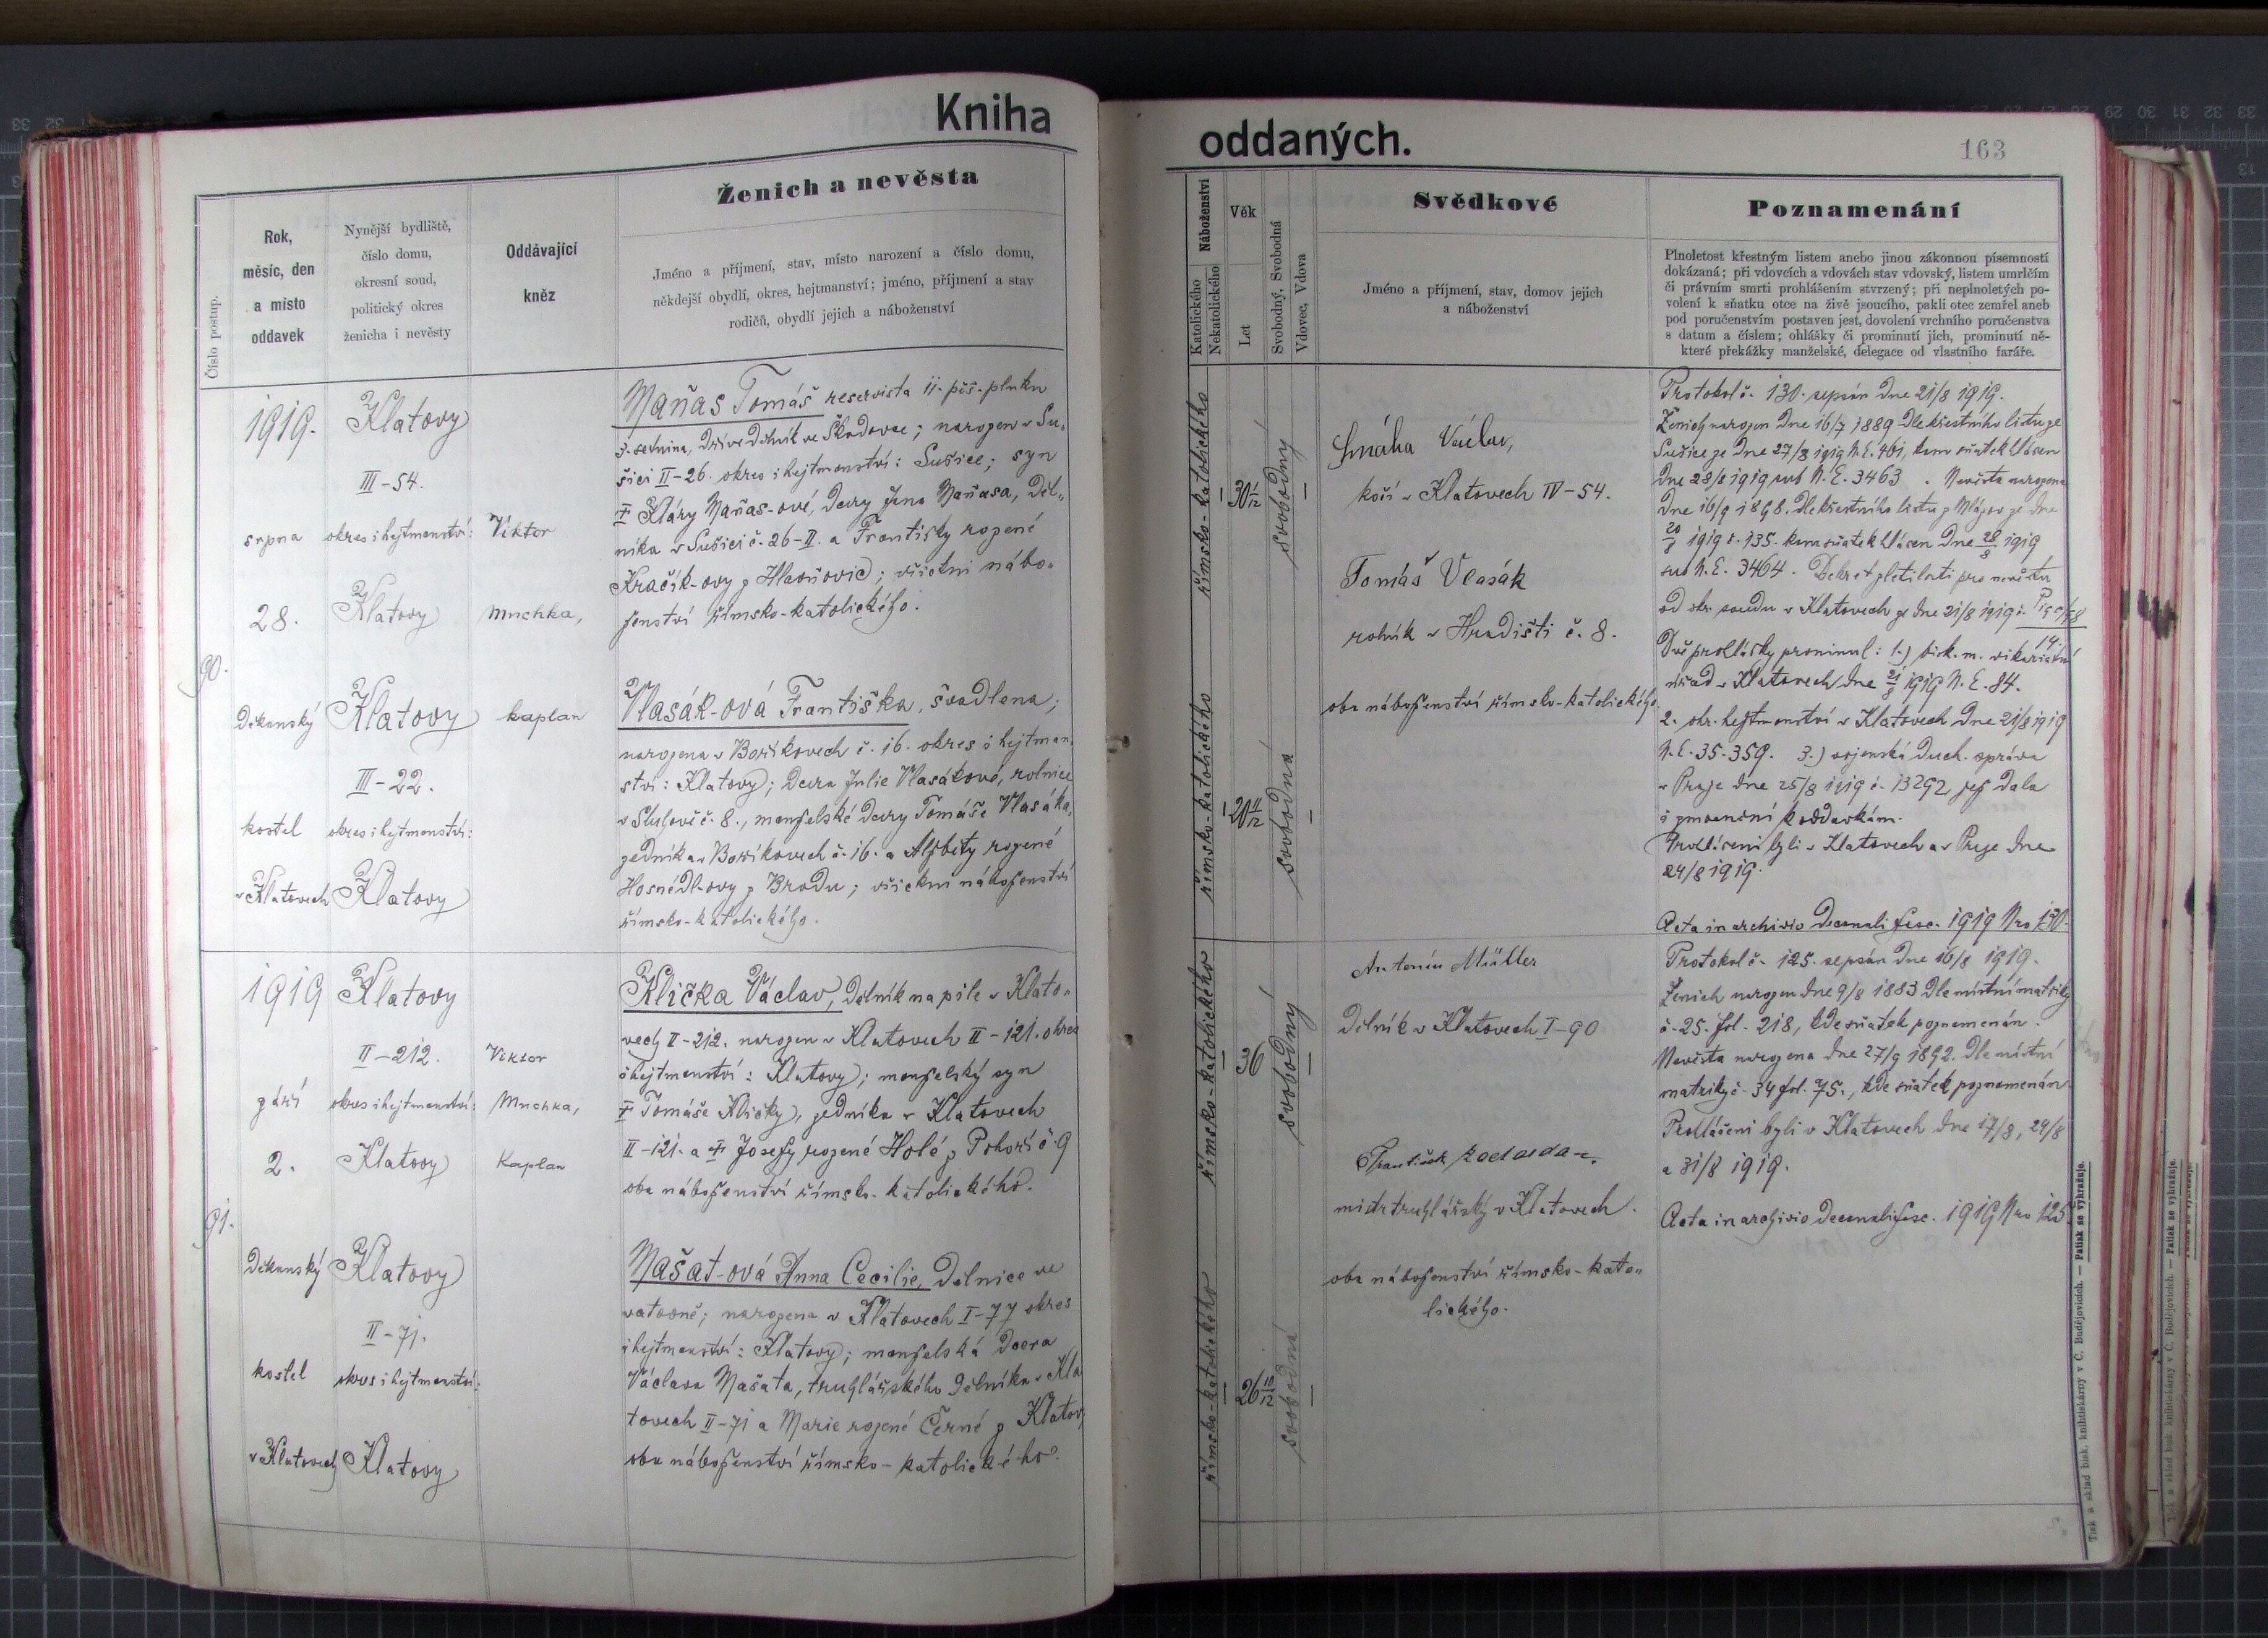 Kniha
oddaných.
163
Číslo postup.
Rok,
měsíc, den
a místo
oddavek
Nynější bydliště,
číslo domu,
okresní soud,
politický okres
ženicha i nevěsty
Oddávající
kněz
Ženich a nevěsta
Jméno a příjmení, stav, místo narození a číslo domu,
někdejší obydlí, okres, hejtmanství; jméno, příjmení a stav
rodičů, obydlí jejich a náboženství
Náboženství
Katolického
Nekatolického
Věk
Let
Svobodný, Svobodná
Vdovec, Vdova
Svědkové
Jméno a příjmení, stav, domov jejich
a náboženství
Poznamenání
Plnoletost křestným listem anebo jinou zákonnou písemností
dokázaná; při vdovcích a vdovách stav vdovský, listem umrlčím
či právním smrti prohlášením stvrzený; při neplnoletých po-
volení k sňatku otce na živě jsoucího, pakli otec zemřel aneb
pod poručenstvím postaven jest, dovolení vrchního poručenstva
s datum a číslem; ohlášky či prominutí jich, prominutí ně-
které překážky manželské, delegace od vlastního faráře.
90.
1919.
srpna
28.
Děkanský
kostel
v Klatovech
Klatovy
III-54.
okres i hejtmanství:
Klatovy
Klatovy
III-22.
okres i hejtmanství:
Klatovy
Viktor
Muchka,
kaplan
Maňas Tomáš reservista 11. pěš. pluku
3. setnina, dříve dělník ve Škodovce; narozen v Su„
šici II-26. okres i hejtmanství: Sušice; syn
† Kláry Maňas-ové, dcery Jana Maňasa, děl„
níka v Sušici č. 26-II. a Františky rozené
Kračík-ovy z Hlavňovic; všichni nábo„
ženství římsko-katolického.
Vlasák-ová Františka, švadlena;
narozena v Boříkovech č. 16. okres i hejtman„
ství: Klatovy; dcera Julie Vlasákové, rolnice
v Sluhově č. 8., manželské dcery Tomáše Vlasáka,
zedníka v Boříkovech č. 16. a Alžběty rozené
Hosnédl-ovy z Brodu; všichni náboženství
římsko-katolického.
římsko-katolického
30 1/12
svobodný
římsko-katolického
20 11/12
svobodná
Smáha Václav,
kočí v Klatovech IV-54.
Tomáš Vlasák
rolník v Hradišti č. 8.
oba náboženství římsko-katolického.
Protokol č. 130. sepsán dne 21/8 1919.
Ženich narozen dne 16/7 1889 dle křestního listu ze
Sušice ze dne 27/8 1919 N.E. 461, kam sňatek hlášen
dne 28/8 1919 sub N.E. 3463. Nevěsta narozena
dne 16/9 1898. dle křestního listu z ze dne
20/8 1919 č. 135. kam sňatek hlášen dne 28/8 1919
sub N.E. 3464. Dekret zletilosti pro nevěstu
od okr. soudu v Klatovech ze dne 21/8 1919 č.
14.
Dvě prohlášky prominul: 1.) bisk. m. vikariátní
úřad v Klatovech dne 21/8 1919 N.E. 84.
2. okr. hejtmanství v Klatovech dne 21/8 1919
N.E. 35.359. 3.) vojenská duch. správa
v Praze dne 25/8 1919 č. 13292, jež dala
i zmocnění k oddavkám.
Prohlášeni byli v Klatovech a v Praze dne
24/8 1919.
Acta in archivio decanali fasc. 1919 Nro 130.
91.
1919
září
2.
Děkanský
kostel
v Klatovech
Klatovy
II-212.
okres i hejtmanství:
Klatovy
Klatovy
II-71.
okres i hejtmanství:
Klatovy
Viktor
Muchka,
Kaplan
Klička Václav, dělník na pile v Klato„
vech II-212. narozen v Klatovech II-121. okres
i hejtmanství: Klatovy; manželský syn
† Tomáše Kličky, zedníka v Klatovech
II-121. a † Josefy rozené Holé z Pohoří č. 9
oba náboženství římsko-katolického.
Mašat-ová Anna Cecilie, dělnice ve
vatovně; narozena v Klatovech I-77 okres
i hejtmanství: Klatovy; manželská dcera
Václava Mašata, truhlářského dělníka v Kla
tovech II-71 a Marie rozené Černé z Klatov,
oba náboženství římsko-katolického.
římsko-katolického
36
svobodný
římsko-katolického
26 10/12
svobodná
Antonín Müller
dělník v Klatovech I-90
František
mistr truhlářský v Klatovech.
oba náboženství římsko-kato„
lického.
Protokol č. 125. sepsán dne 16/8 1919.
Ženich narozen dne 9/8 1883 dle místní matriky
č. 25. fol. 218, kde sňatek poznamenán.
Nevěsta narozena dne 27/9 1892. dle místní
matriky č. 34 fol. 75., kde sňatek poznamenán
Prohlášeni byli v Klatovech dne 17/8, 24/8
a 31/8 1919.
Acta in archivio decanali fasc. 1919 Nro 125.
Tisk a sklad bisk. knihtiskárny v Č. Budějovicích. — Patisk se vyhražuje.
Tisk a sklad bisk. knihtiskárny v Č. Budějovicích. — Patisk se vyhražuje.